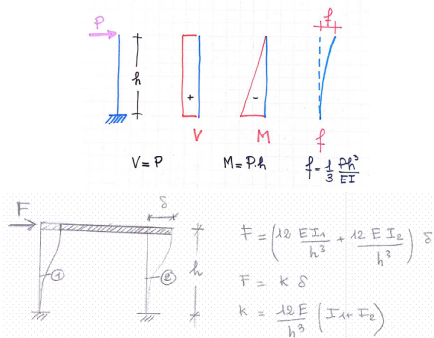 P
h
+
V
-
M
f
f
V = P
M = P.h
f = 1/3 Ph³/EI
δ
F
1
2
h
F = (12 E I₁/h³ + 12 E I₂/h³) δ
F = k δ
k = 12E/h³ (I₁+ I₂)